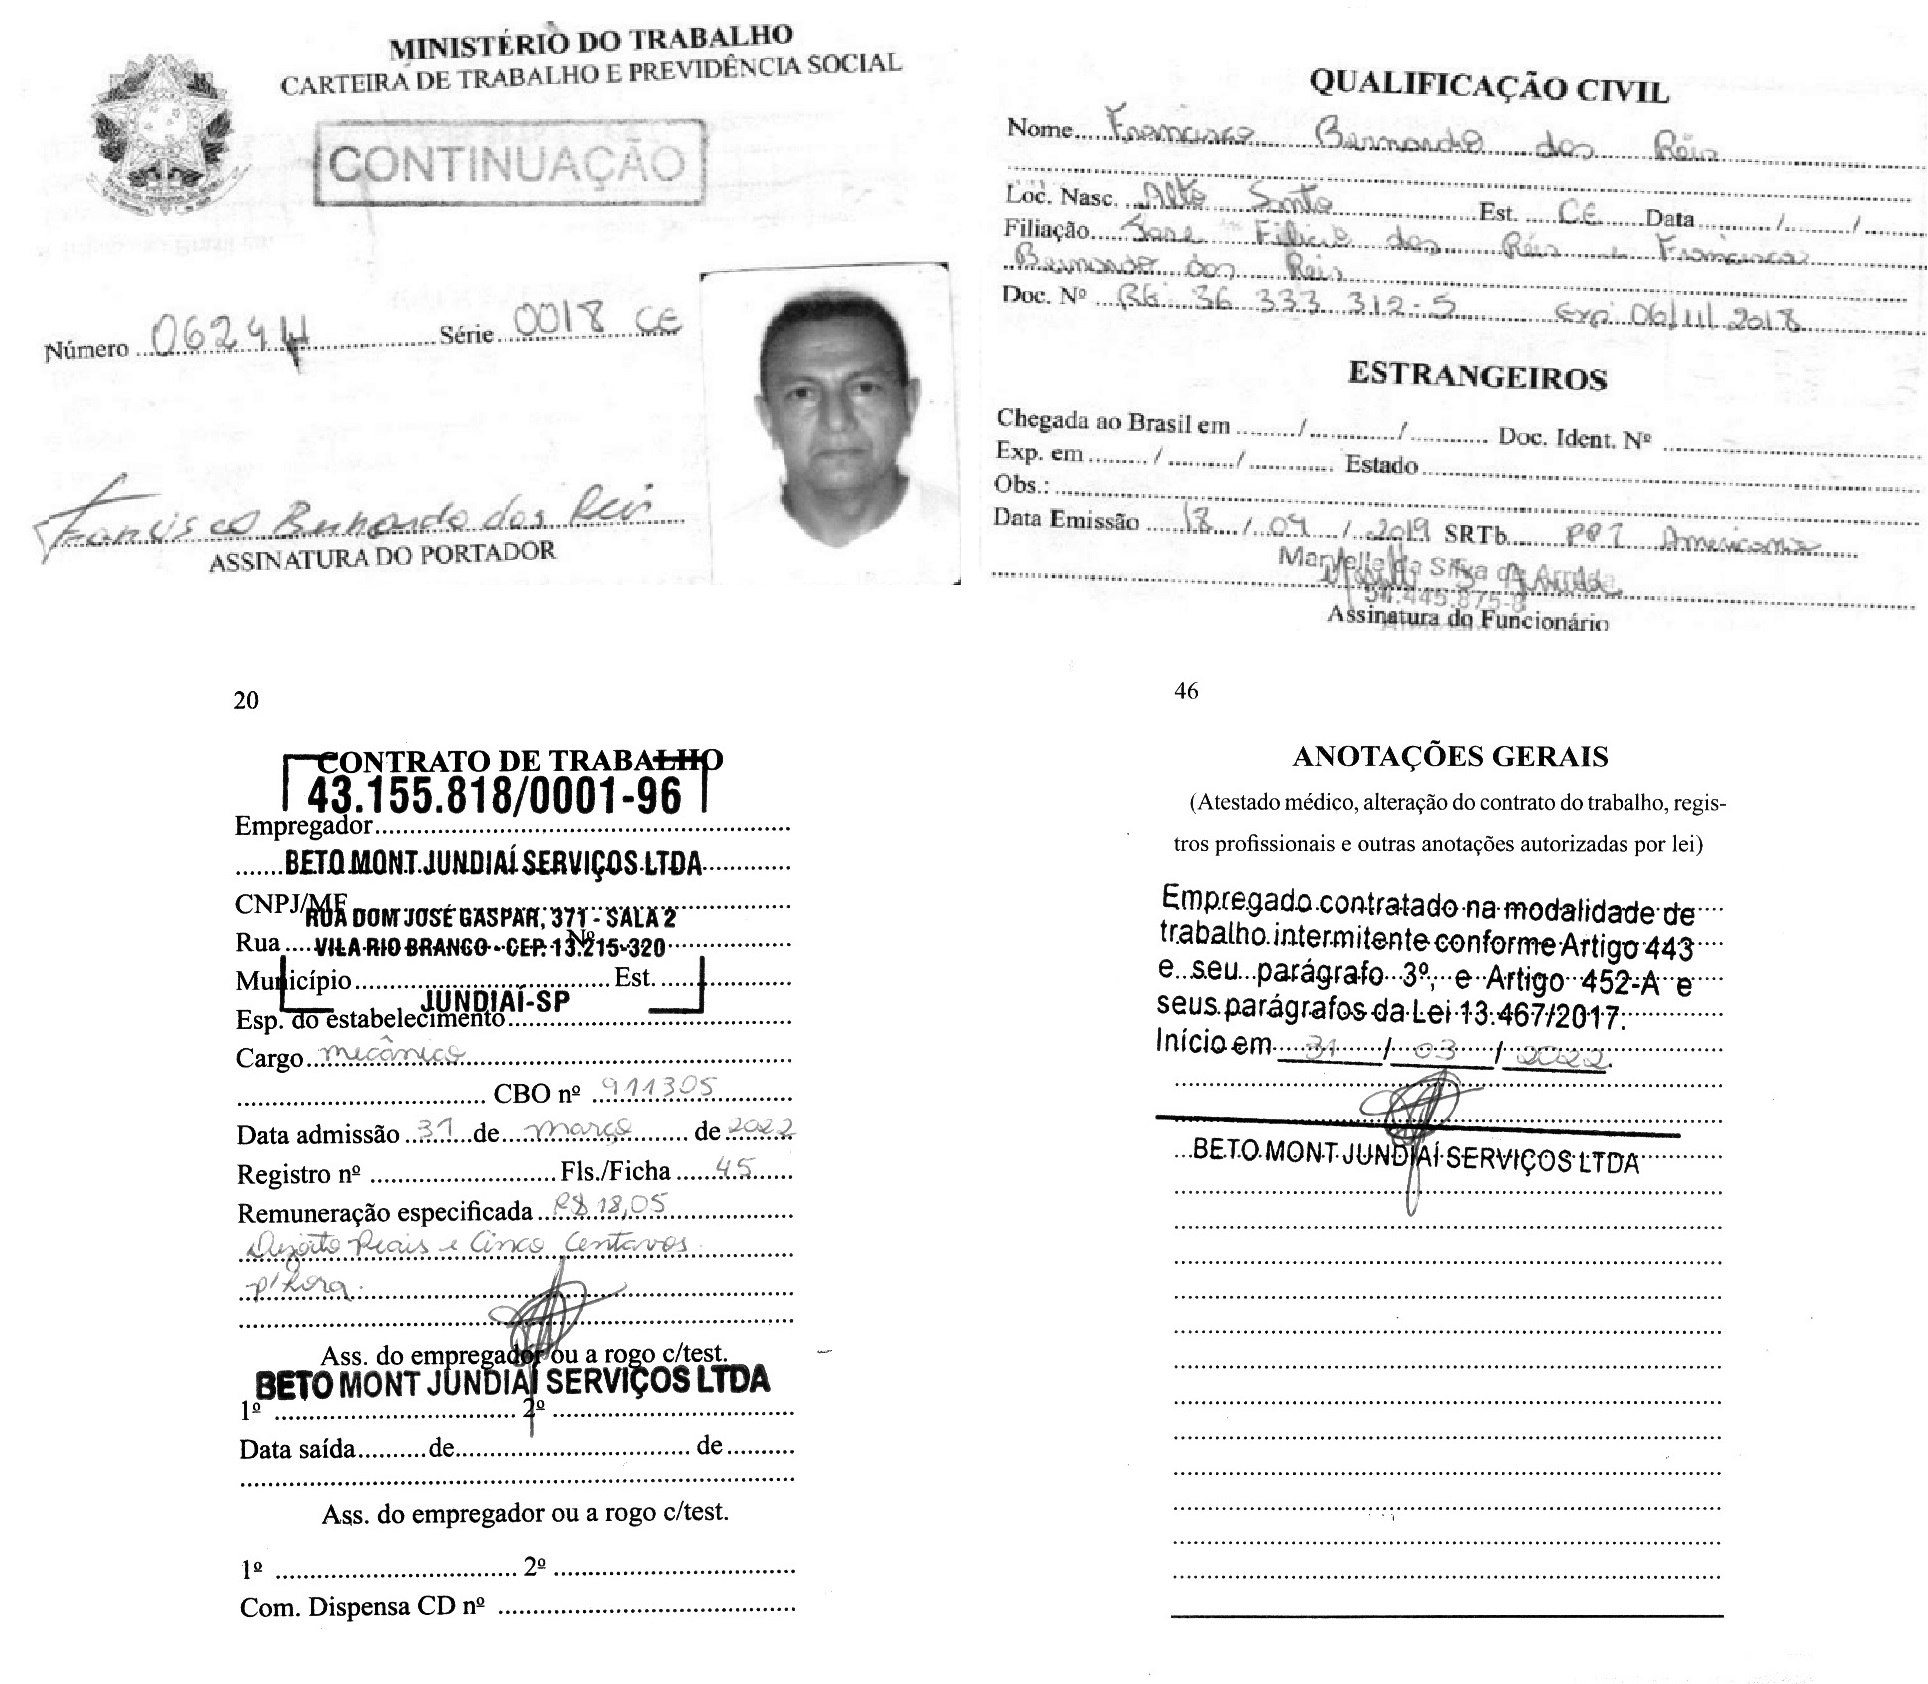 MINISTÉRIO DO TRABALHO
CARTEIRA DE TRABALHO E PREVIDÊNCIA SOCIAL
CONTINUAÇÃO
Número 06244 Série 0018 CE
Francisco Bernardo dos Reis
ASSINATURA DO PORTADOR
QUALIFICAÇÃO CIVIL
Nome Francisco Bernardo dos Reis
Loc. Nasc. Alto Santo Est. CE Data / /
Filiação Jose Filicio dos Reis e Francisca
Bernardo dos Reis
Doc. Nº RG: 36 333 312-5 Exp: 06/11/2018
ESTRANGEIROS
Chegada ao Brasil em / / Doc. Ident. Nº
Exp. em / / Estado
Obs.:
Data Emissão 18 / 04 / 2019 SRTb PPT Americana
da Silva de Arruda
.445.875-8
Assinatura do Funcionário
20
CONTRATO DE TRABALHO
43.155.818/0001-96
Empregador
BETO MONT JUNDIAÍ SERVIÇOS LTDA
CNPJ/MF
RUA DOM JOSÉ GASPAR, 371 - SALA 2
Rua Nº
VILA RIO BRANCO - CEP. 13.215-320
Município Est.
JUNDIAÍ-SP
Esp. do estabelecimento
Cargo mecânico
CBO nº 911305
Data admissão 31 de março de 2022
Registro nº Fls./Ficha 45
Remuneração especificada R$ 18,05
Dezoito Reais e Cinco Centavos
p/hora.
Ass. do empregador ou a rogo c/test.
BETO MONT JUNDIAÍ SERVIÇOS LTDA
1º 2º
Data saída de de
Ass. do empregador ou a rogo c/test.
1º 2º
Com. Dispensa CD nº
46
ANOTAÇÕES GERAIS
(Atestado médico, alteração do contrato do trabalho, regis-
tros profissionais e outras anotações autorizadas por lei)
Empregado contratado na modalidade de
trabalho intermitente conforme Artigo 443
e seu parágrafo 3º, e Artigo 452-A e
seus parágrafos da Lei 13.467/2017.
Início em 31 / 03 / 2022.
BETO MONT JUNDIAÍ SERVIÇOS LTDA